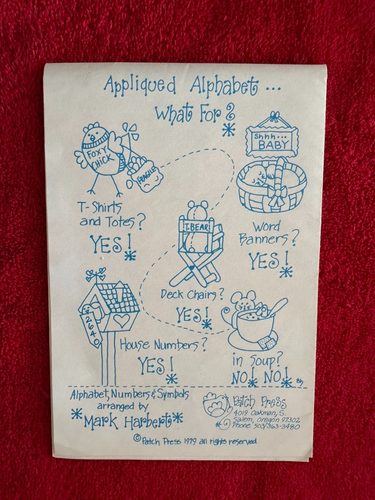 Appliqued Alphabet ...
What For?
FOXY
CHICK
Shhh...
BABY
T-Shirts
and Totes?
YES!
T. BEAR
Word
Banners?
YES!
Deck Chairs?
YES!
2640
House Numbers?
YES!
in Soup?
NO! NO!
Alphabet, Numbers & Symbols
arranged by
*Mark Harbert*
Patch Press
4019 Oakman, S.
Salem, Oregon 97302
Phone 503/363-3480
© Patch Press 1979 all rights reserved